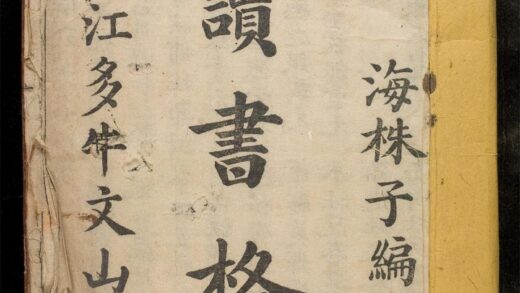 海株子編
讀書格
江多牛文山